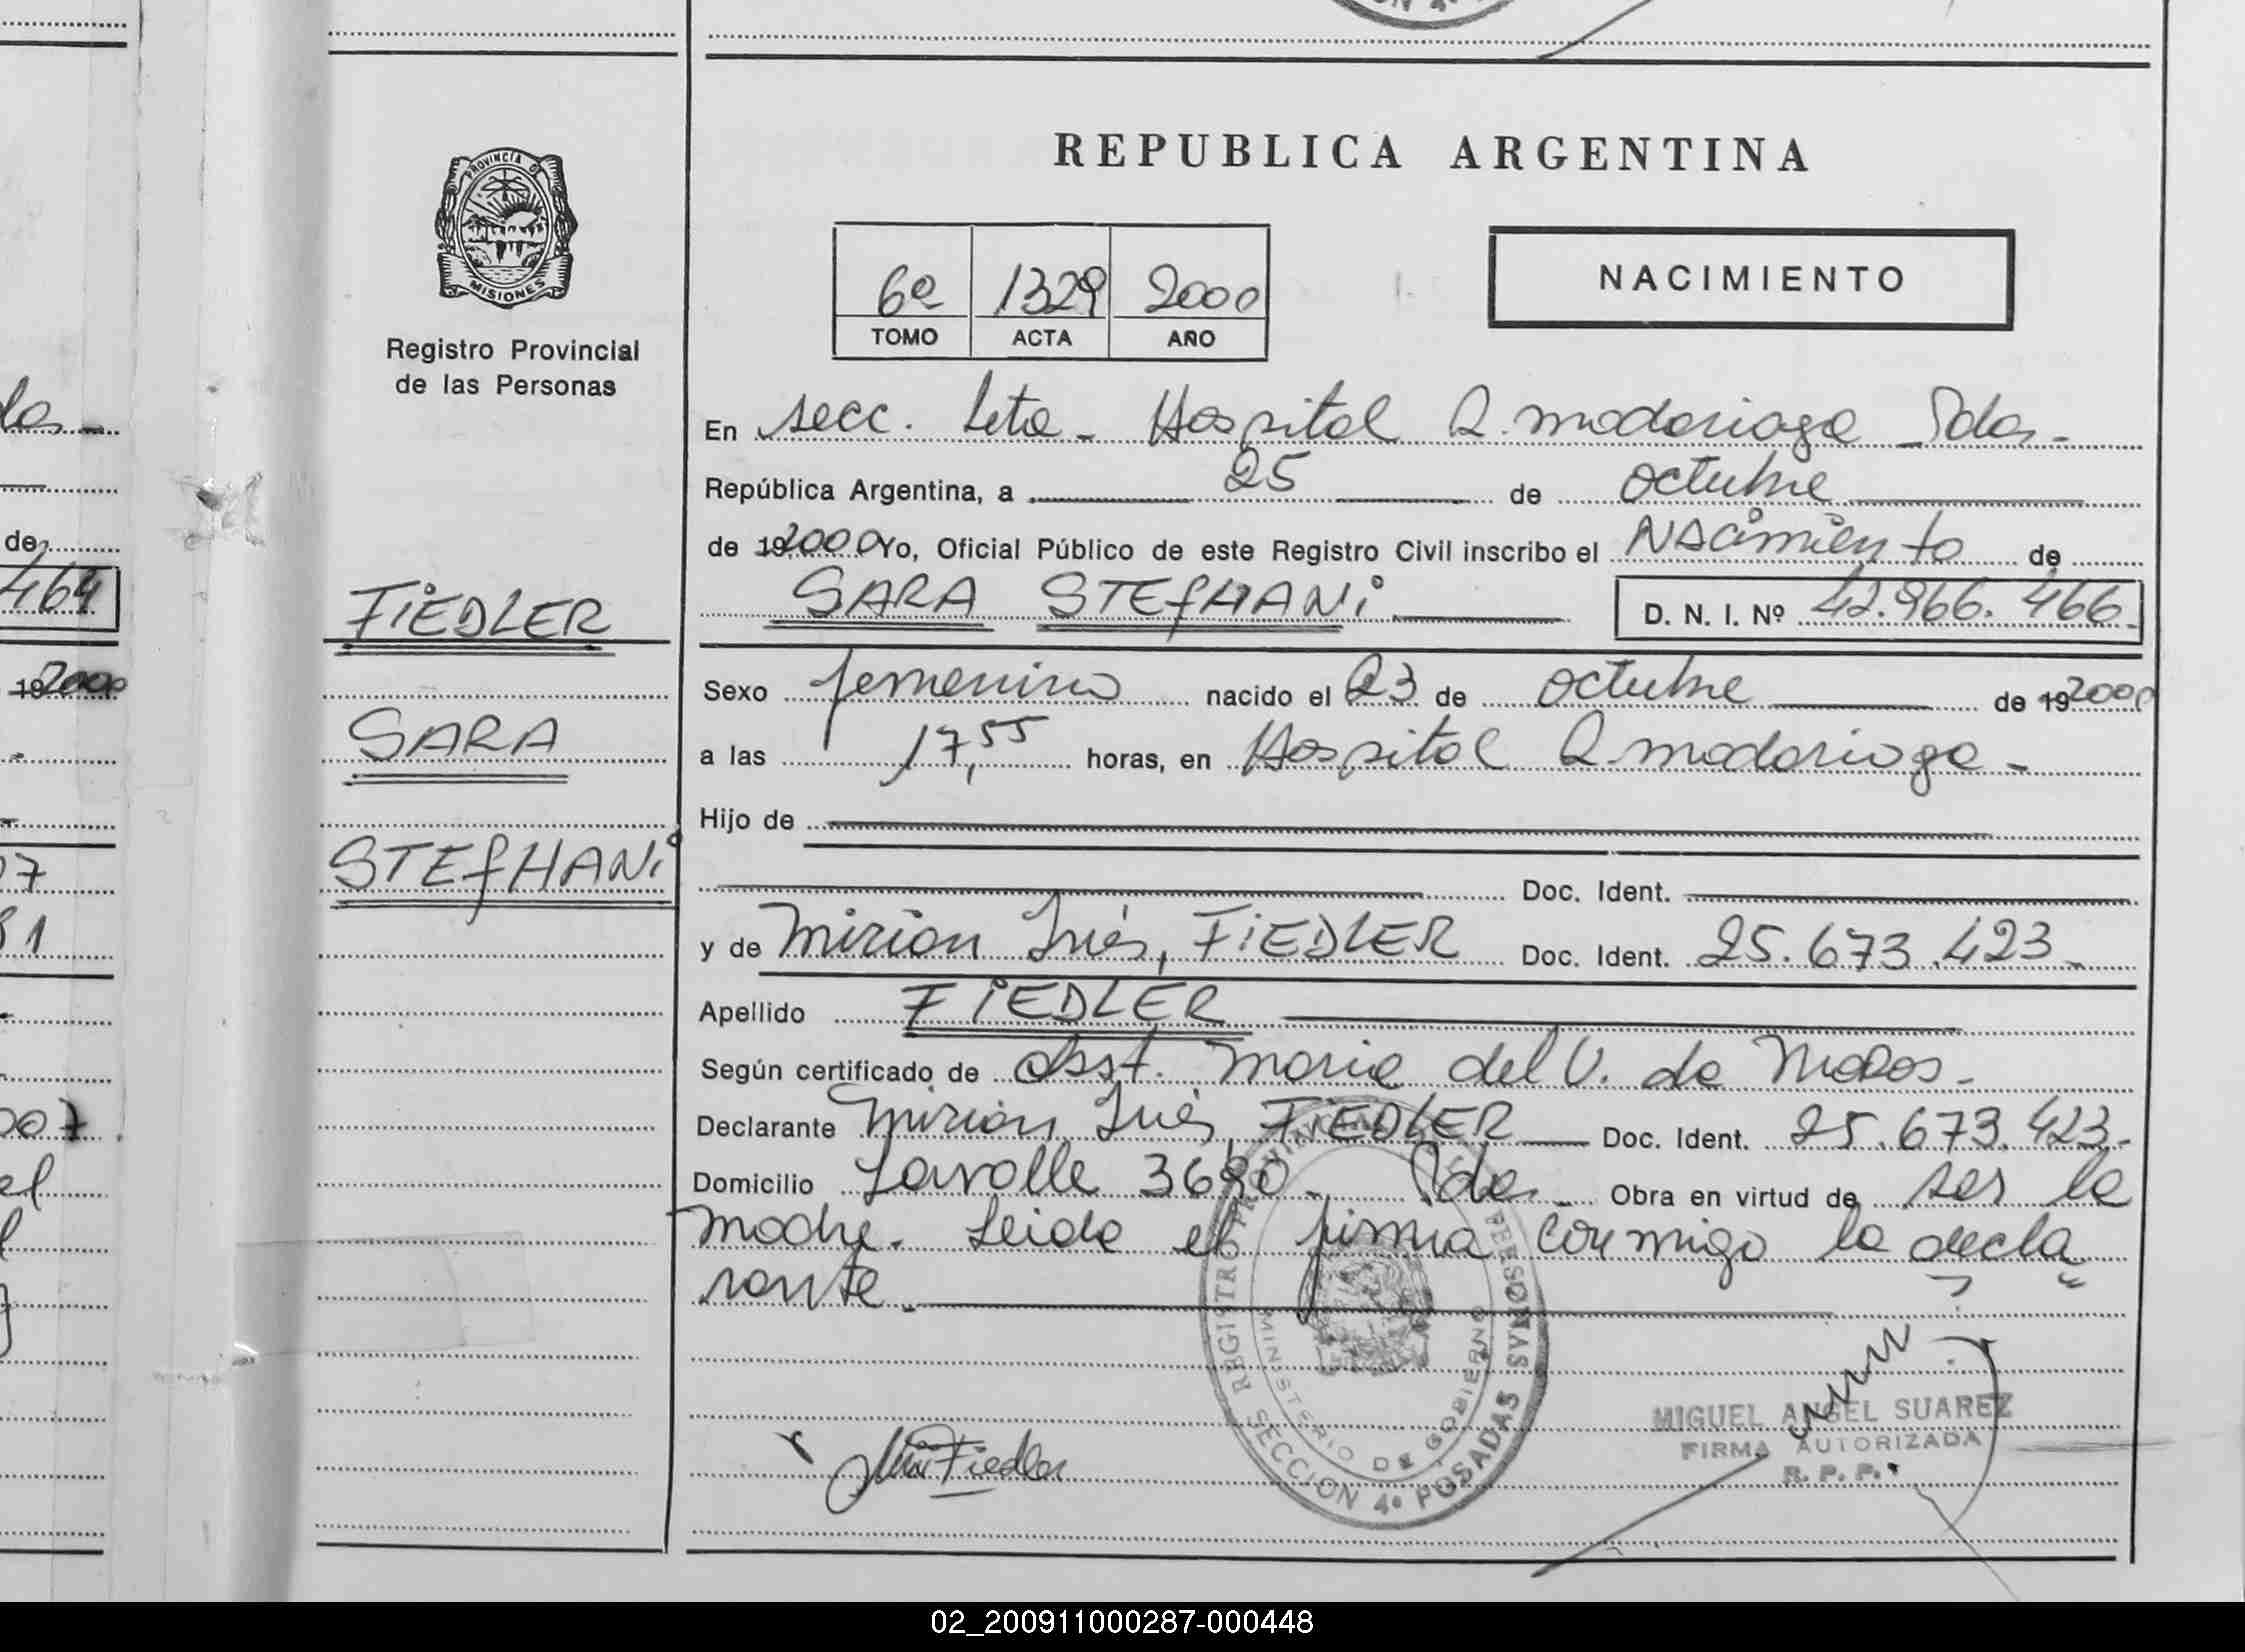 REPUBLICA ARGENTINA
PROVINCIA DE
MISIONES
Registro Provincial
de las Personas
6º 1329 2000
TOMO ACTA AÑO
NACIMIENTO
En secc. 4ta - Hospital R. Madariaga - Pdas -
República Argentina, a 25 de octubre
de 192000 Yo, Oficial Público de este Registro Civil inscribo el Nacimiento de
SARA STEfHANi D. N. I. Nº 42.966.466-
FiEDLER
Sexo femenino nacido el 23 de octubre de 192000
SARA
a las 17,55 horas, en Hospital R. Madariaga -
Hijo de
STEfHANi
Doc. Ident.
y de Mirian Inés, FiEDLER Doc. Ident. 25.673.423-
Apellido FiEDLER
Según certificado de Obst. Maria del V. de
Declarante Mirian Inés, FiEDLER Doc. Ident. 25.673.423-
Domicilio Lavalle 3680 - Pdas - Obra en virtud de ser la
madre. Leida el firma conmigo la decla
rante.
REGISTRO PROVINCIAL DE LAS PERSONAS
MINISTERIO DE GOBIERNO
SECCION 4º POSADAS
Fiedler
MIGUEL ANGEL SUAREZ
FIRMA AUTORIZADA
R. P. P.
de
464
192000
07
81
007
el
02_200911000287-000448